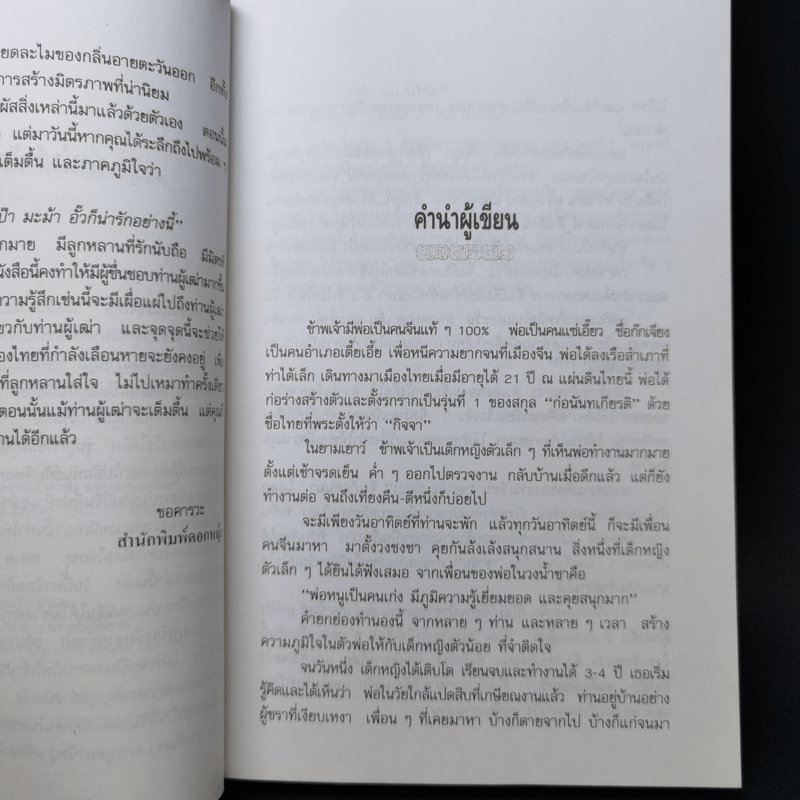 ยดละไมของกลิ่นอายตะวันออก อีกทั้ง
การสร้างมิตรภาพที่น่านิยม
ผัสสิ่งเหล่านี้มาแล้วด้วยตัวเอง ตอนนั้น
แต่มาวันนี้หากคุณได้ระลึกถึงไปพร้อม ๆ
เต็มตื้น และภาคภูมิใจว่า
ป๊า มะม้า อั๊วก็น่ารักอย่างนี้”
กมาย มีลูกหลานที่รักนับถือ มีมิตร
นังสือนี้คงทำให้มีผู้ชื่นชอบท่านผู้เฒ่ามากขึ้น
ความรู้สึกเช่นนี้จะมีเผื่อแผ่ไปถึงท่านผู้เฒ่า
ยวกับท่านผู้เฒ่า และจุดจุดนี้จะช่วยให้
องไทยที่กำลังเลือนหายจะยังคงอยู่ เพื่อ
ที่ลูกหลานใส่ใจ ไม่ไปเหมาทำครั้งเดียว
ตอนนั้นแม้ท่านผู้เฒ่าจะเต็มตื้น แต่คุณก็
านได้อีกแล้ว
ขอคารวะ
สำนักพิมพ์ดอกหญ้า
คำนำผู้เขียน
ข้าพเจ้ามีพ่อเป็นคนจีนแท้ ๆ 100% พ่อเป็นคนแซ่เอี๊ยว ชื่อก๊กเจียง
เป็นคนอำเภอเตี้ยเอี้ย เพื่อหนีความยากจนที่เมืองจีน พ่อได้ลงเรือสำเภาที่
ท่าไต้เล็ก เดินทางมาเมืองไทยเมื่อมีอายุได้ 21 ปี ณ แผ่นดินไทยนี้ พ่อได้
ก่อร่างสร้างตัวและตั้งรกรากเป็นรุ่นที่ 1 ของสกุล “ก่อนันทเกียรติ” ด้วย
ชื่อไทยที่พระตั้งให้ว่า “กิจจา”
ในยามเยาว์ ข้าพเจ้าเป็นเด็กหญิงตัวเล็ก ๆ ที่เห็นพ่อทำงานมากมาย
ตั้งแต่เช้าจรดเย็น ค่ำ ๆ ออกไปตรวจงาน กลับบ้านเมื่อดึกแล้ว แต่ก็ยัง
ทำงานต่อ จนถึงเที่ยงคืน-ตีหนึ่งก็บ่อยไป
จะมีเพียงวันอาทิตย์ที่ท่านจะพัก แล้วทุกวันอาทิตย์นี้ ก็จะมีเพื่อน
คนจีนมาหา มาตั้งวงชงชา คุยกันล้งเล้งสนุกสนาน สิ่งหนึ่งที่เด็กหญิง
ตัวเล็ก ๆ ได้ยินได้ฟังเสมอ จากเพื่อนของพ่อในวงน้ำชาคือ
“พ่อหนูเป็นคนเก่ง มีภูมิความรู้เยี่ยมยอด และคุยสนุกมาก”
คำยกย่องทำนองนี้ จากหลาย ๆ ท่าน และหลาย ๆ เวลา สร้าง
ความภูมิใจในตัวพ่อให้กับเด็กหญิงตัวน้อย ที่จำติดใจ
จนวันหนึ่ง เด็กหญิงได้เติบโต เรียนจบและทำงานได้ 3-4 ปี เธอเริ่ม
รู้คิดและได้เห็นว่า พ่อในวัยใกล้แปดสิบที่เกษียณงานแล้ว ท่านอยู่บ้านอย่าง
ผู้ชราที่เงียบเหงา เพื่อน ๆ ที่เคยมาหา บ้างก็ตายจากไป บ้างก็แก่จนมา